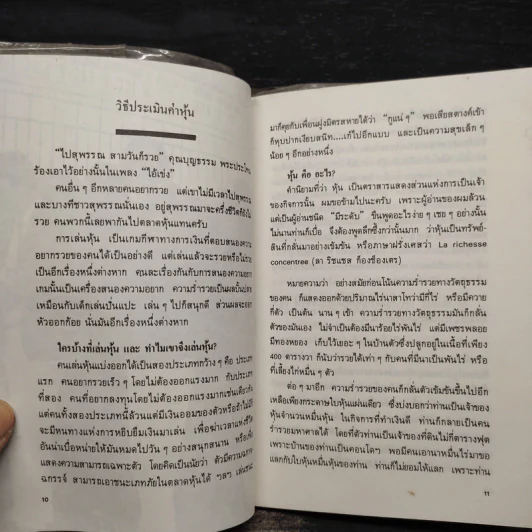 วิธีประเมินค่าหุ้น
"ไปสุพรรณ สามวันก็รวย" คุณบุญธรรม พระประโท
ร้องเอาไว้อย่างนั้นในเพลง "ไอ้เข่ง"
คนอื่น ๆ อีกหลายคนอยากรวย แต่เขาไม่มีเวลาไปสุพรรณ
และบางทีชาวสุพรรณนั่นเอง อยู่สุพรรณมาจะครึ่งชีวิตก็ยังไม่
รวย คนพวกนี้เลยพากันไปตลาดหุ้นแทนครับ
การเล่นหุ้น เป็นเกมกีฬาทางการเงินที่ตอบสนองความ
อยากรวยของคนได้เป็นอย่างดี แต่เล่นแล้วจะรวยหรือไม่รวย
เป็นอีกเรื่องหนึ่งต่างหาก คนละเรื่องกันกับการสนองความอยาก
เกมนั้นเป็นเครื่องสนองความอยาก ความร่ำรวยเป็นผลบั้นปลาย
เหมือนกับเด็กเล่นปั้นแปะ เล่น ๆ ไปก็สนุกดี ส่วนผลจะออก
หัวออกก้อย นั่นมันอีกเรื่องหนึ่งต่างหาก
ใครบ้างที่เล่นหุ้น และ ทำไมเขาจึงเล่นหุ้น?
คนเล่นหุ้นแบ่งออกได้เป็นสองประเภทกว้าง ๆ คือ ประเภท
แรก คนอยากรวยเร็ว ๆ โดยไม่ต้องออกแรงมาก กับประเภท
ที่สอง คนที่อยากลงทุนโดยไม่ต้องออกแรงมากเช่นเดียวกัน
แต่คนทั้งสองประเภทนี้ล้วนแต่มีเงินออมของตัวหรือถ้าไม่มีก็
จะมีหนทางแห่งการหยิบยืมเงินมาเล่น เพื่อฆ่าเวลาแห่งชีวิต
อันน่าเบื่อหน่ายให้มันหมดไปวัน ๆ อย่างสนุกสนาน หรือเพื่อ
แสดงความสามารถเฉพาะตัว โดยคิดเป็นนัยว่า ตัวมีความ
ฉกรรจ์ สามารถเอาชนะเภทภัยในตลาดหุ้นได้ ฯลฯ เล่นชนะ
10
มาก็คุยกับเพื่อนฝูงมิตรสหายได้ว่า "กูแน่ ๆ" พอเสียสตางค์เข้า
ก็หุบปากเงียบสนิท....เก๋ไปอีกแบบ และเป็นความสุขเล็ก ๆ
น้อย ๆ อีกอย่างหนึ่ง
หุ้น คือ อะไร?
คำนิยามที่ว่า หุ้น เป็นตราสารแสดงส่วนแห่งการเป็นเจ้า
ของกิจการนั้น ผมขอข้ามไปนะครับ เพราะผู้อ่านของผมล้วน
แต่เป็นผู้อ่านชนิด "มีระดับ" ขืนพูดอะไรง่าย ๆ เชย ๆ อย่างนั้น
ไม่ท่านก็เบื่อ จึงต้องพูดลึกซึ้งกว่านั้นมาก ว่าหุ้นเป็นทรัพย์-
สินที่กลั่นมาอย่างเข้มข้น หรือภาษาฝรั่งเศสว่า La richesse
concentree (ลา ริชแชส ก็องซ็องเตร)
หมายความว่า อย่างสมัยก่อนโน้นความร่ำรวยทางวัตถุธรรม
ของคน ก็แสดงออกด้วยปริมาณไร่นาสาโทว่ามีกี่ไร่ หรือมีควาย
กี่ตัว เป็นต้น นาน ๆ เข้า ความร่ำรวยทางวัตถุธรรมมันก็กลั่น
ตัวของมันเอง ไม่จำเป็นต้องมีนาร้อยไร่พันไร่ แต่มีเพชรพลอย
มีทองหยอง เก็บไว้เยอะ ๆ ในบ้านตัวซึ่งปลูกอยู่ในเนื้อที่เพียง
400 ตารางวา ก็นับว่ารวยได้เท่า ๆ กับคนที่มีนาเป็นพันไร่ หรือ
ที่เลี้ยงไก่หมื่น ๆ ตัว
ต่อ ๆ มาอีก ความร่ำรวยของคนก็กลั่นตัวเข้มข้นขึ้นไปอีก
เหลือเพียงกระดาษใบหุ้นแผ่นเดียว ซึ่งบ่งบอกว่าท่านเป็นเจ้าของ
หุ้นจำนวนหมื่นหุ้น ในกิจการที่ทำเงินดี ท่านก็กลายเป็นคน
ร่ำรวยมหาศาลได้ โดยที่ตัวท่านเป็นเจ้าของที่ดินไม่กี่ตารางฟุต
เพราะบ้านของท่านเป็นคอนโดฯ พอมีคนเอานาหมื่นไร่มาขอ
แลกกับใบหุ้นหมื่นหุ้นของท่าน ท่านก็ไม่ยอมให้แลก เพราะท่าน
11